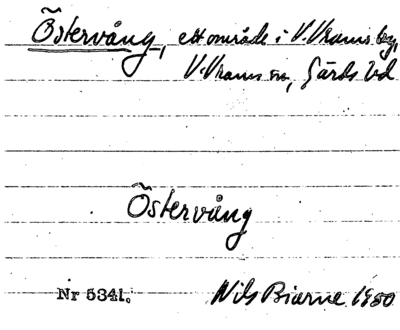 Östervång, ett område i V. Vrams by,
V. Vram sn, Gärds hd
Östervång
Nr 5341. Nils Biarne 1980